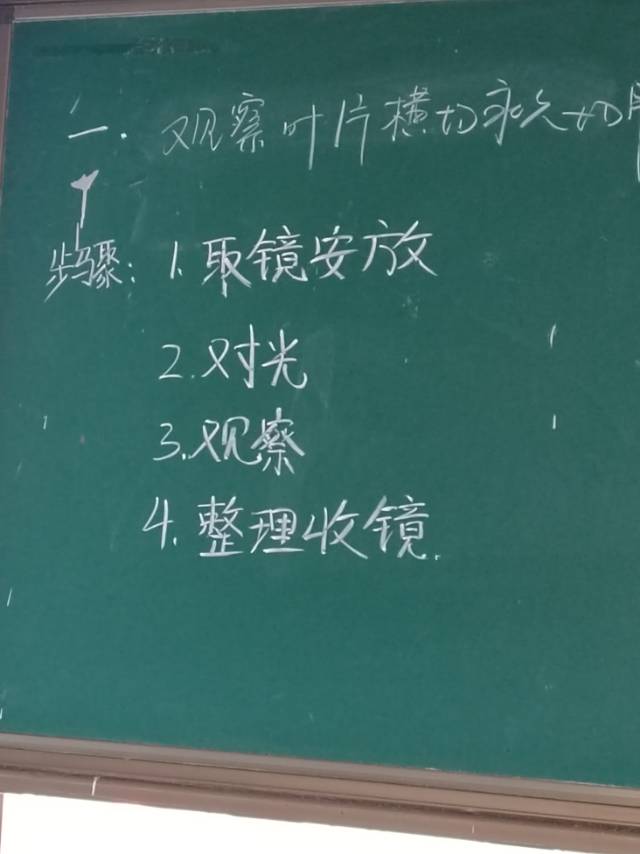 一. 观察叶片横切永久切
步骤: 1. 取镜安放
2. 对光
3. 观察
4. 整理收镜.